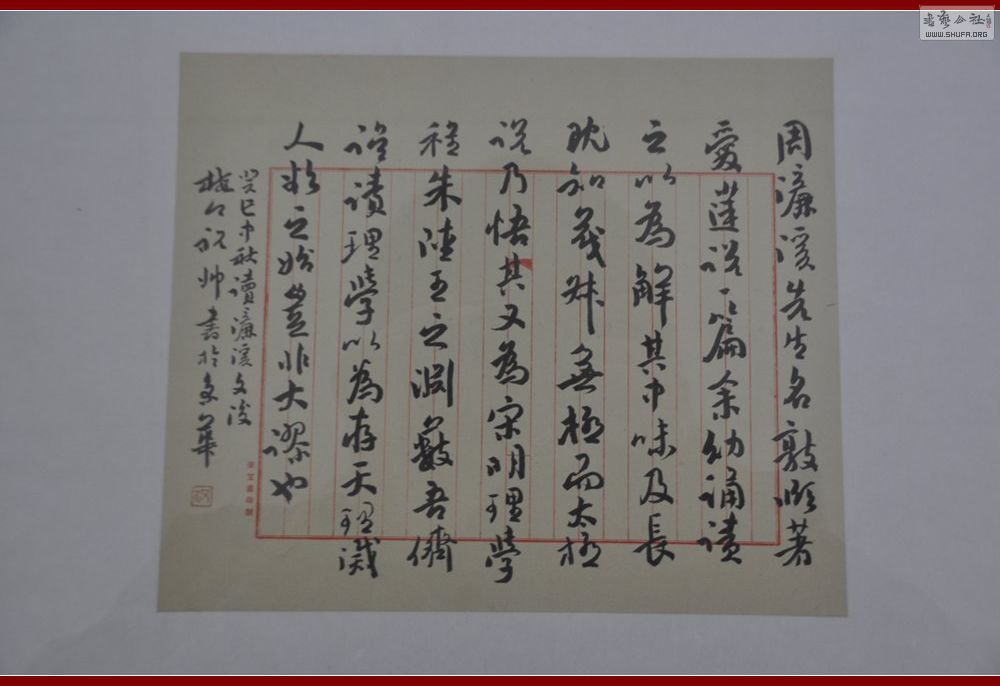 周濂溪先生名敦頤著
愛蓮說一篇余幼誦讀
之以為解其中味及長
既知茂叔無極而太極
說乃悟其又為宋明理學
程朱陸王之淵藪吾儕
讀理學以為存天理滅
人欲之始豈非大謬也
癸巳中秋讀濂溪文後
祝帥書於京華
書藝公社
WWW.SHUFA.ORG